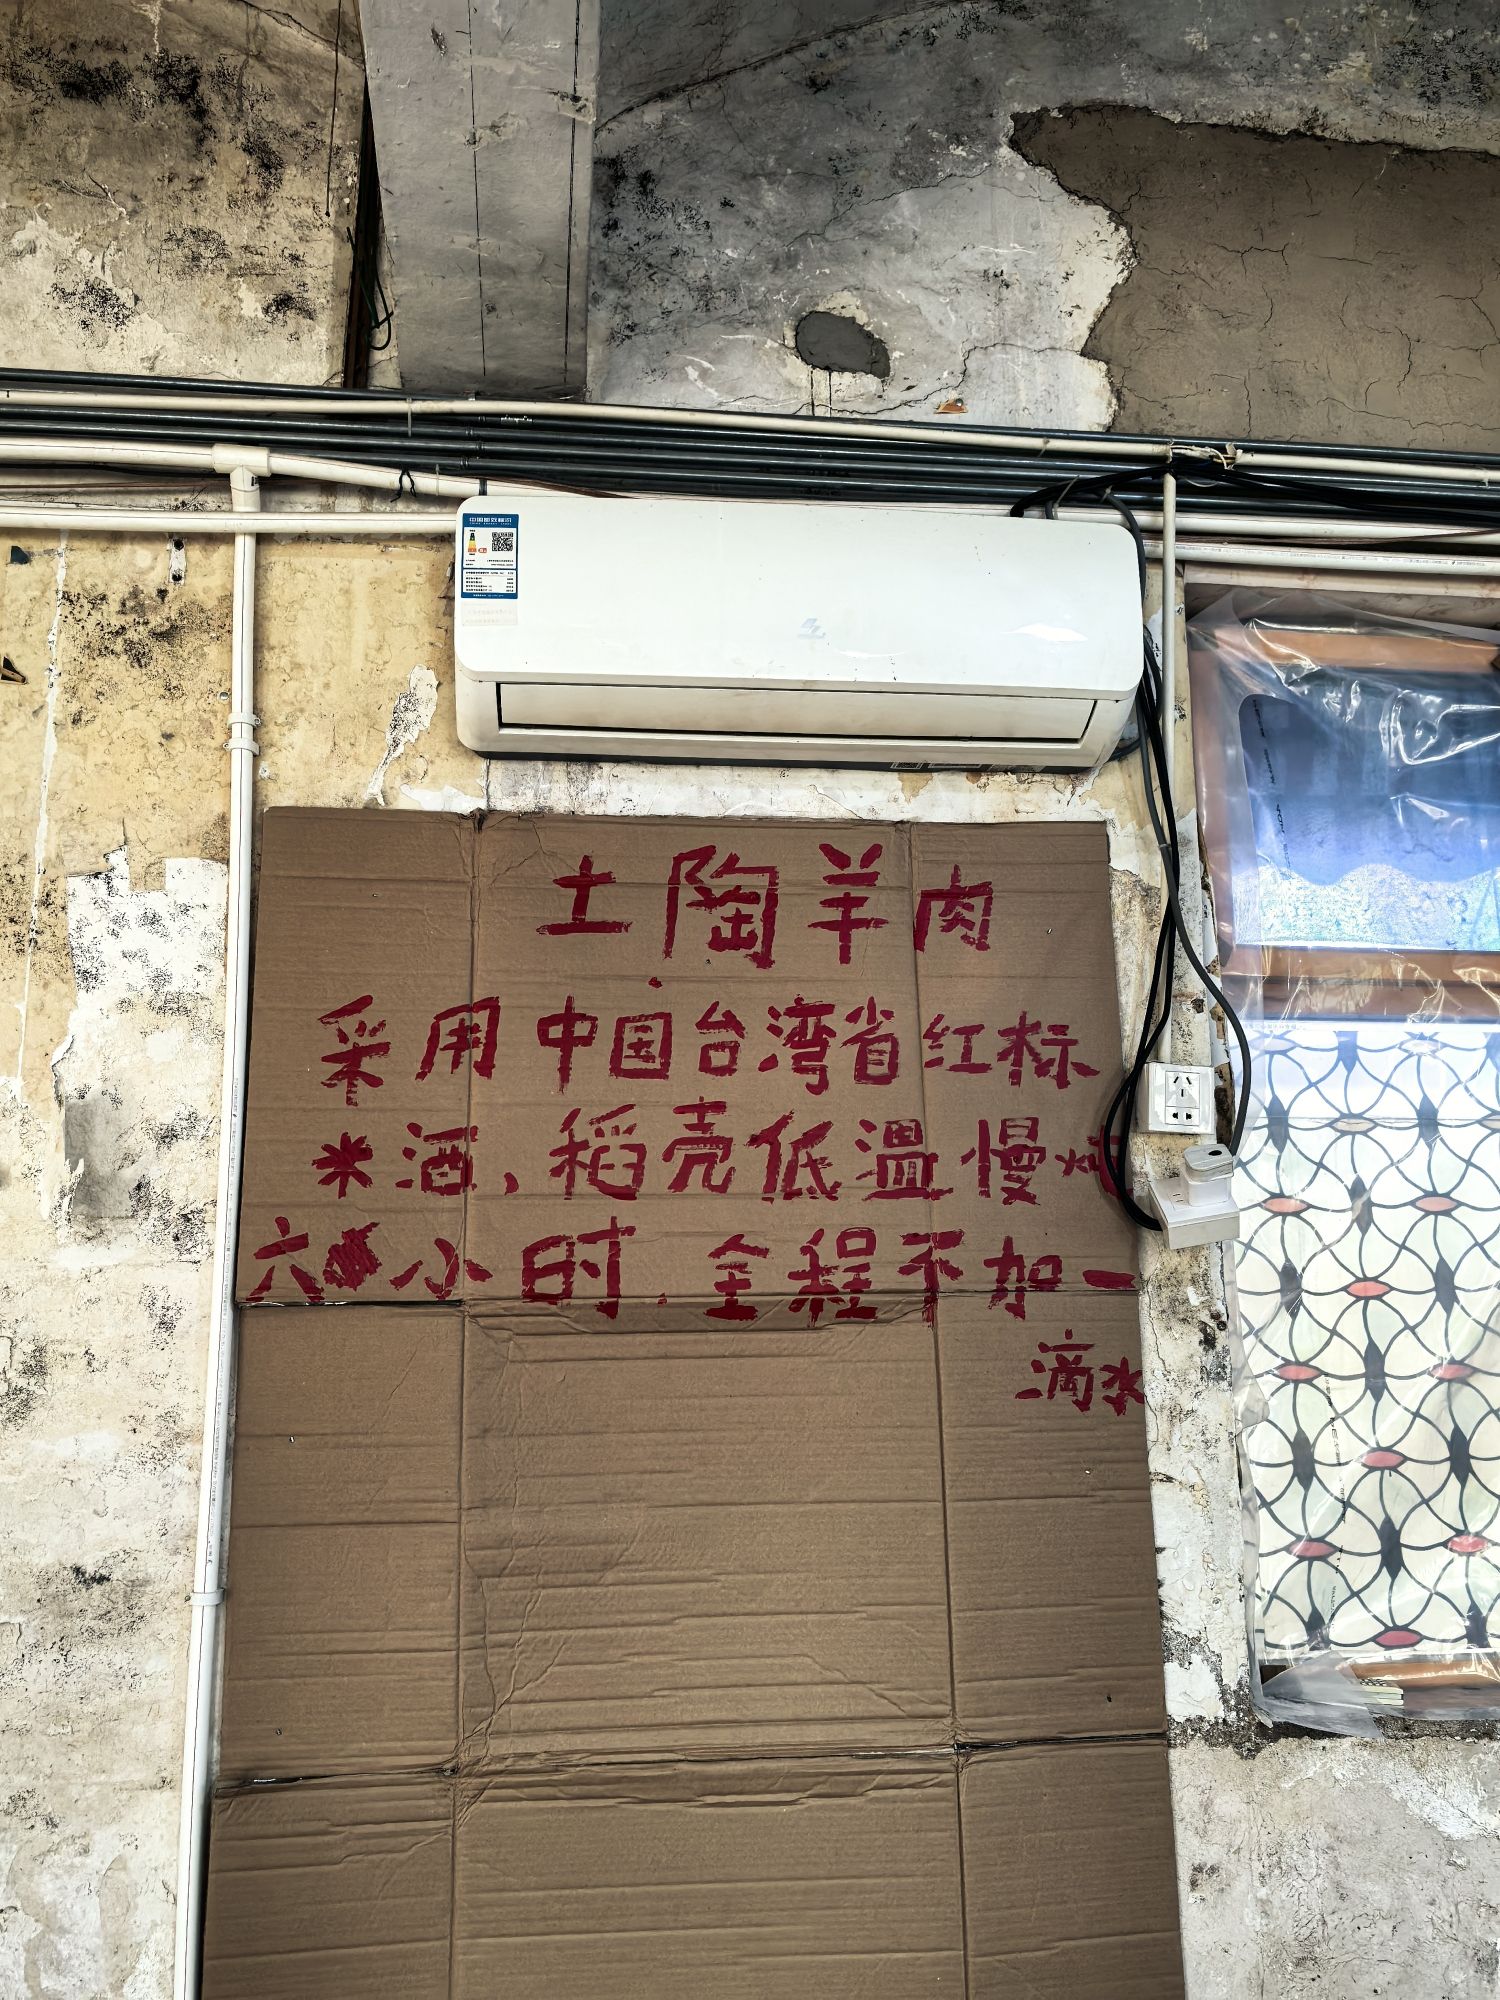 中国能效标识
土陶羊肉
采用中国台湾省红标
米酒,稻壳低温慢
六小时.全程不加一
滴水